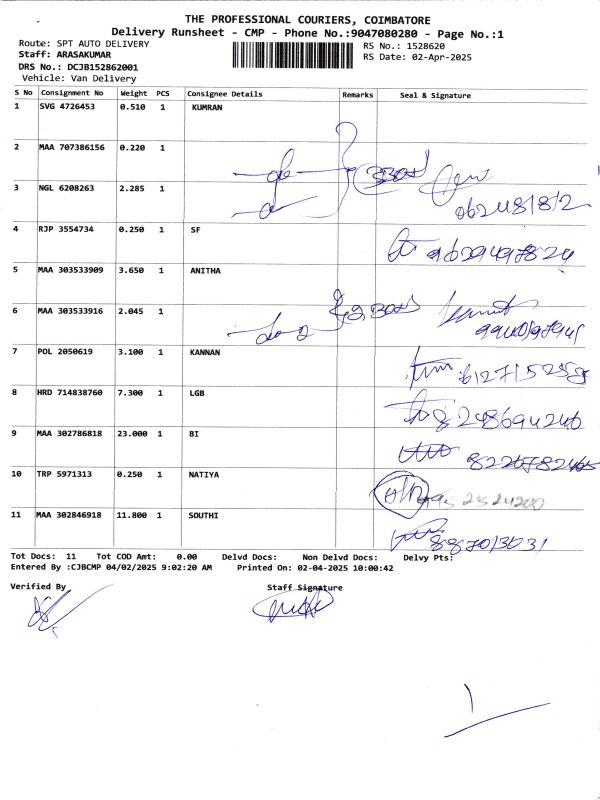 THE PROFESSIONAL COURIERS, COIMBATORE
Delivery Runsheet - CMP - Phone No.:9047080280 - Page No.:1
Route: SPT AUTO DELIVERY
RS No.: 1528620
Staff: ARASAKUMAR
RS Date: 02-Apr-2025
DRS No.: DCJB152862001
Vehicle: Van Delivery
S No Consignment No Weight PCS Consignee Details Remarks Seal & Signature
1 SVG 4726453 0.510 1 KUMRAN
2 MAA 707386156 0.220 1
3 NGL 6208263 2.285 1
4 RJP 3554734 0.250 1 SF
5 MAA 303533909 3.650 1 ANITHA
6 MAA 303533916 2.045 1
7 POL 2050619 3.100 1 KANNAN
8 HRD 714838760 7.300 1 LGB
9 MAA 302786818 23.000 1 BI
10 TRP 5971313 0.250 1 NATIYA
11 MAA 302846918 11.800 1 SOUTHI
Tot Docs: 11 Tot COD Amt: 0.00 Delvd Docs: Non Delvd Docs: Delvy Pts:
Entered By :CJBCMP 04/02/2025 9:02:20 AM Printed On: 02-04-2025 10:00:42
Verified By Staff Signature